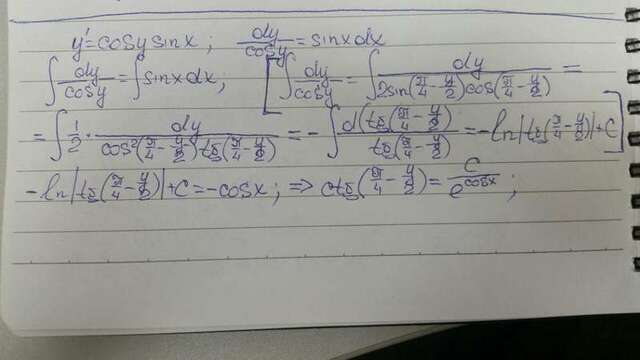 y' = cosy sinx ; dy/cosy = sinx dx
∫ dy/cosy = ∫ sinx dx ; [ ∫ dy/cosy = ∫ dy/(2sin(π/4 - y/2)cos(π/4 - y/2)) =
= ∫ 1/2 · dy/(cos²(π/4 - y/2) tg(π/4 - y/2)) = - ∫ d(tg(π/4 - y/2))/tg(π/4 - y/2) = -ln|tg(π/4 - y/2)| + C ]
-ln|tg(π/4 - y/2)| + C = -cosx ; => ctg(π/4 - y/2) = C/e^cosx ;